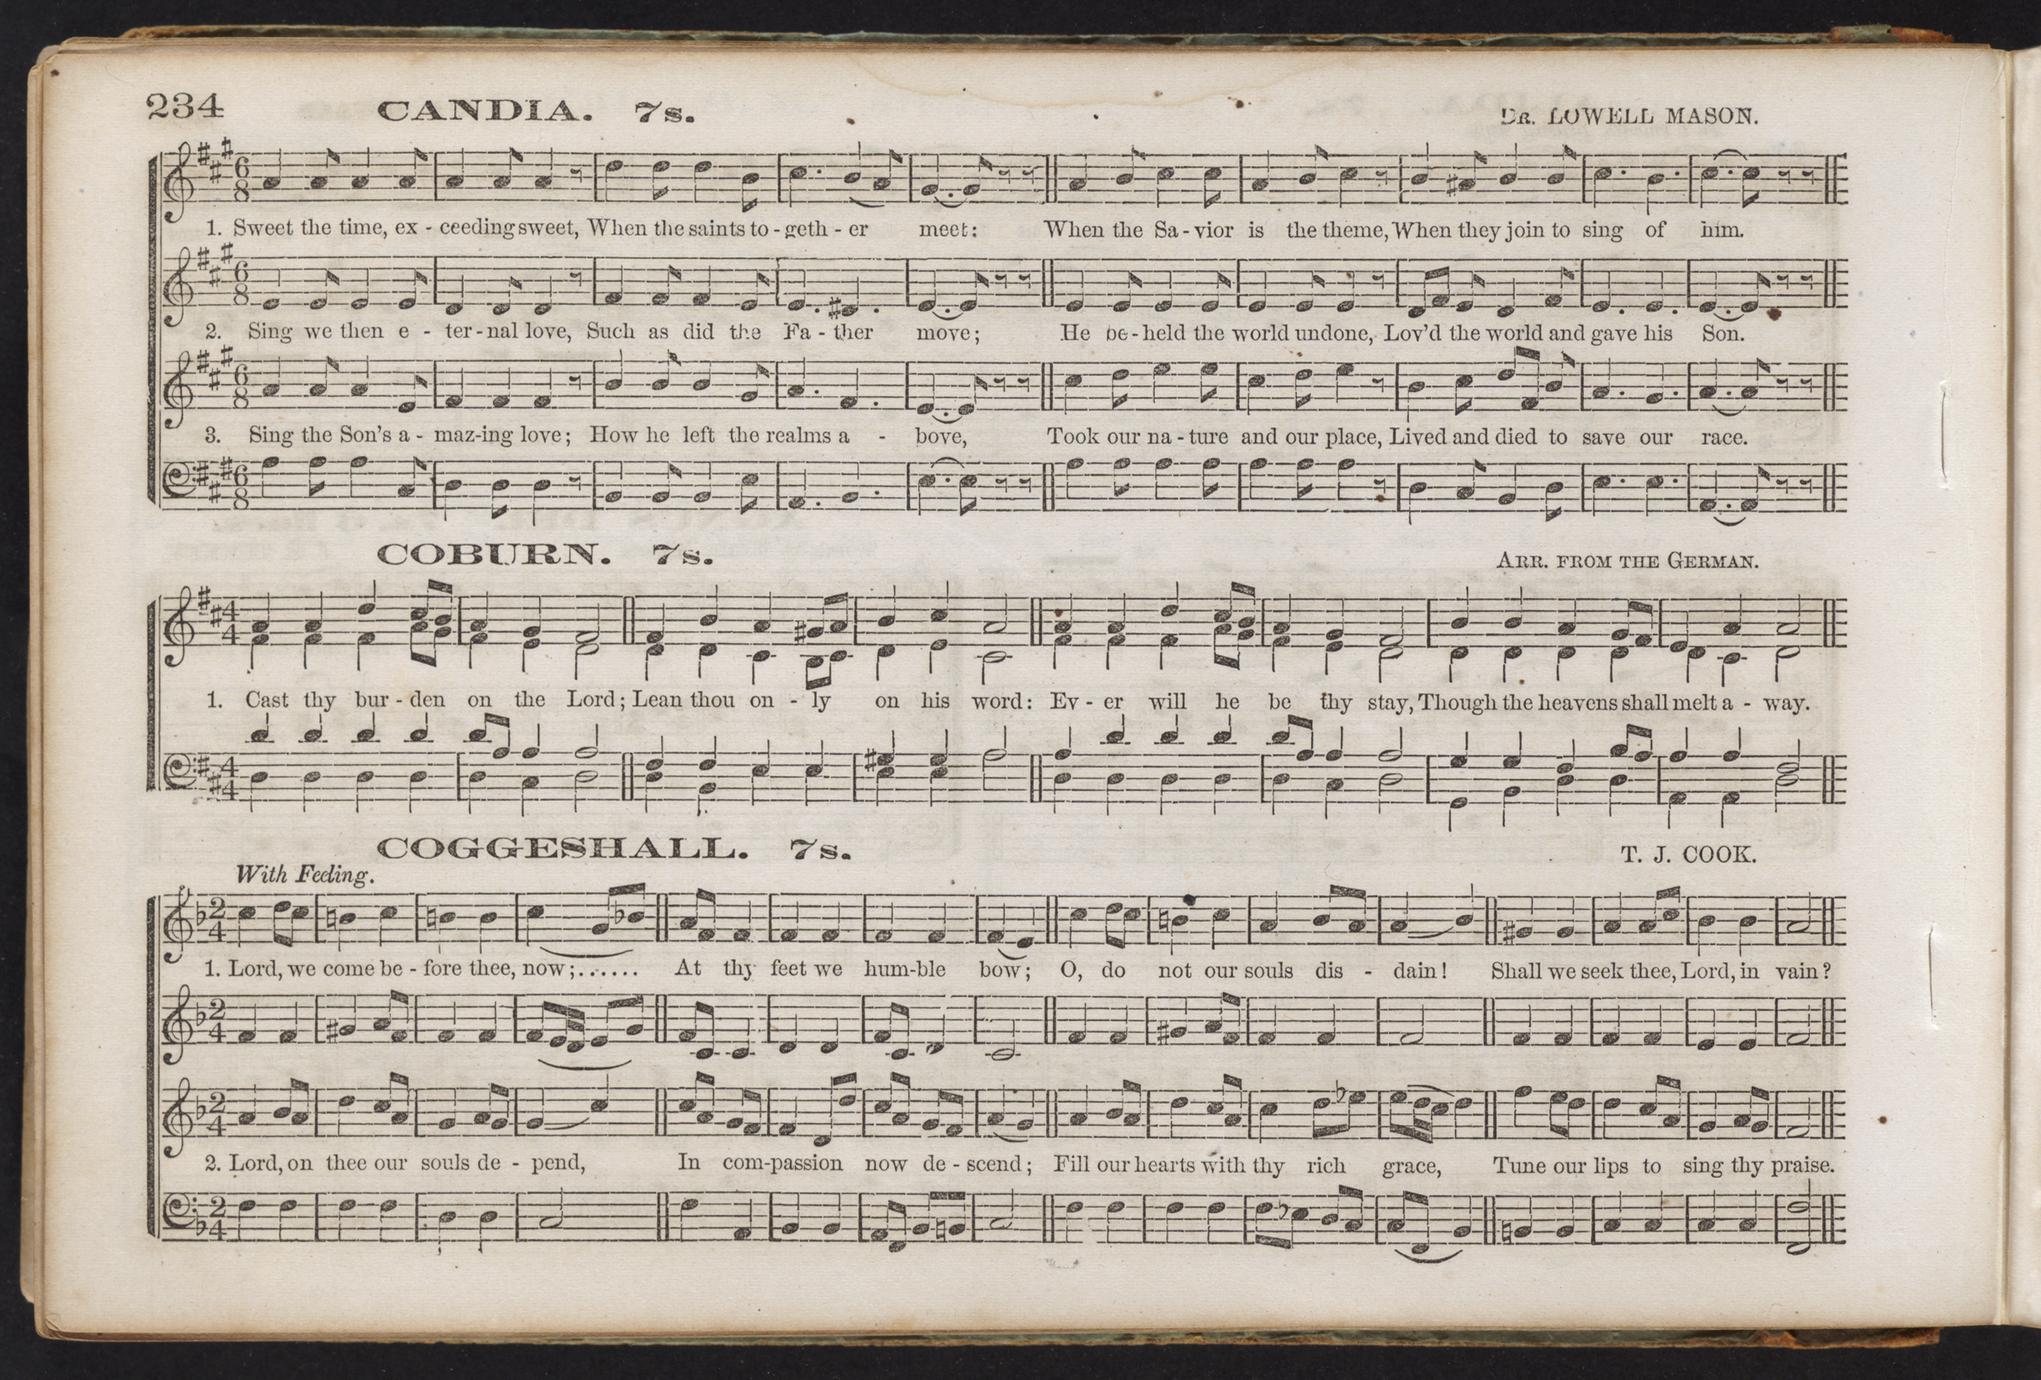 234 CANDIA. 7s. DR. LOWELL MASON.
1. Sweet the time, ex - ceeding sweet, When the saints to - geth - er meet: When the Sa - vior is the theme, When they join to sing of him.
2. Sing we then e - ter - nal love, Such as did the Fa - ther move; He be - held the world undone, Lov'd the world and gave his Son.
3. Sing the Son's a - maz - ing love; How he left the realms a - bove, Took our na - ture and our place, Lived and died to save our race.
COBURN. 7s. ARR. FROM THE GERMAN.
1. Cast thy bur - den on the Lord; Lean thou on - ly on his word: Ev - er will he be thy stay, Though the heavens shall melt a - way.
COGGESHALL. 7s. T. J. COOK.
With Feeling.
1. Lord, we come be - fore thee, now;...... At thy feet we hum-ble bow; O, do not our souls dis - dain! Shall we seek thee, Lord, in vain?
2. Lord, on thee our souls de - pend, In com-passion now de - scend; Fill our hearts with thy rich grace, Tune our lips to sing thy praise.